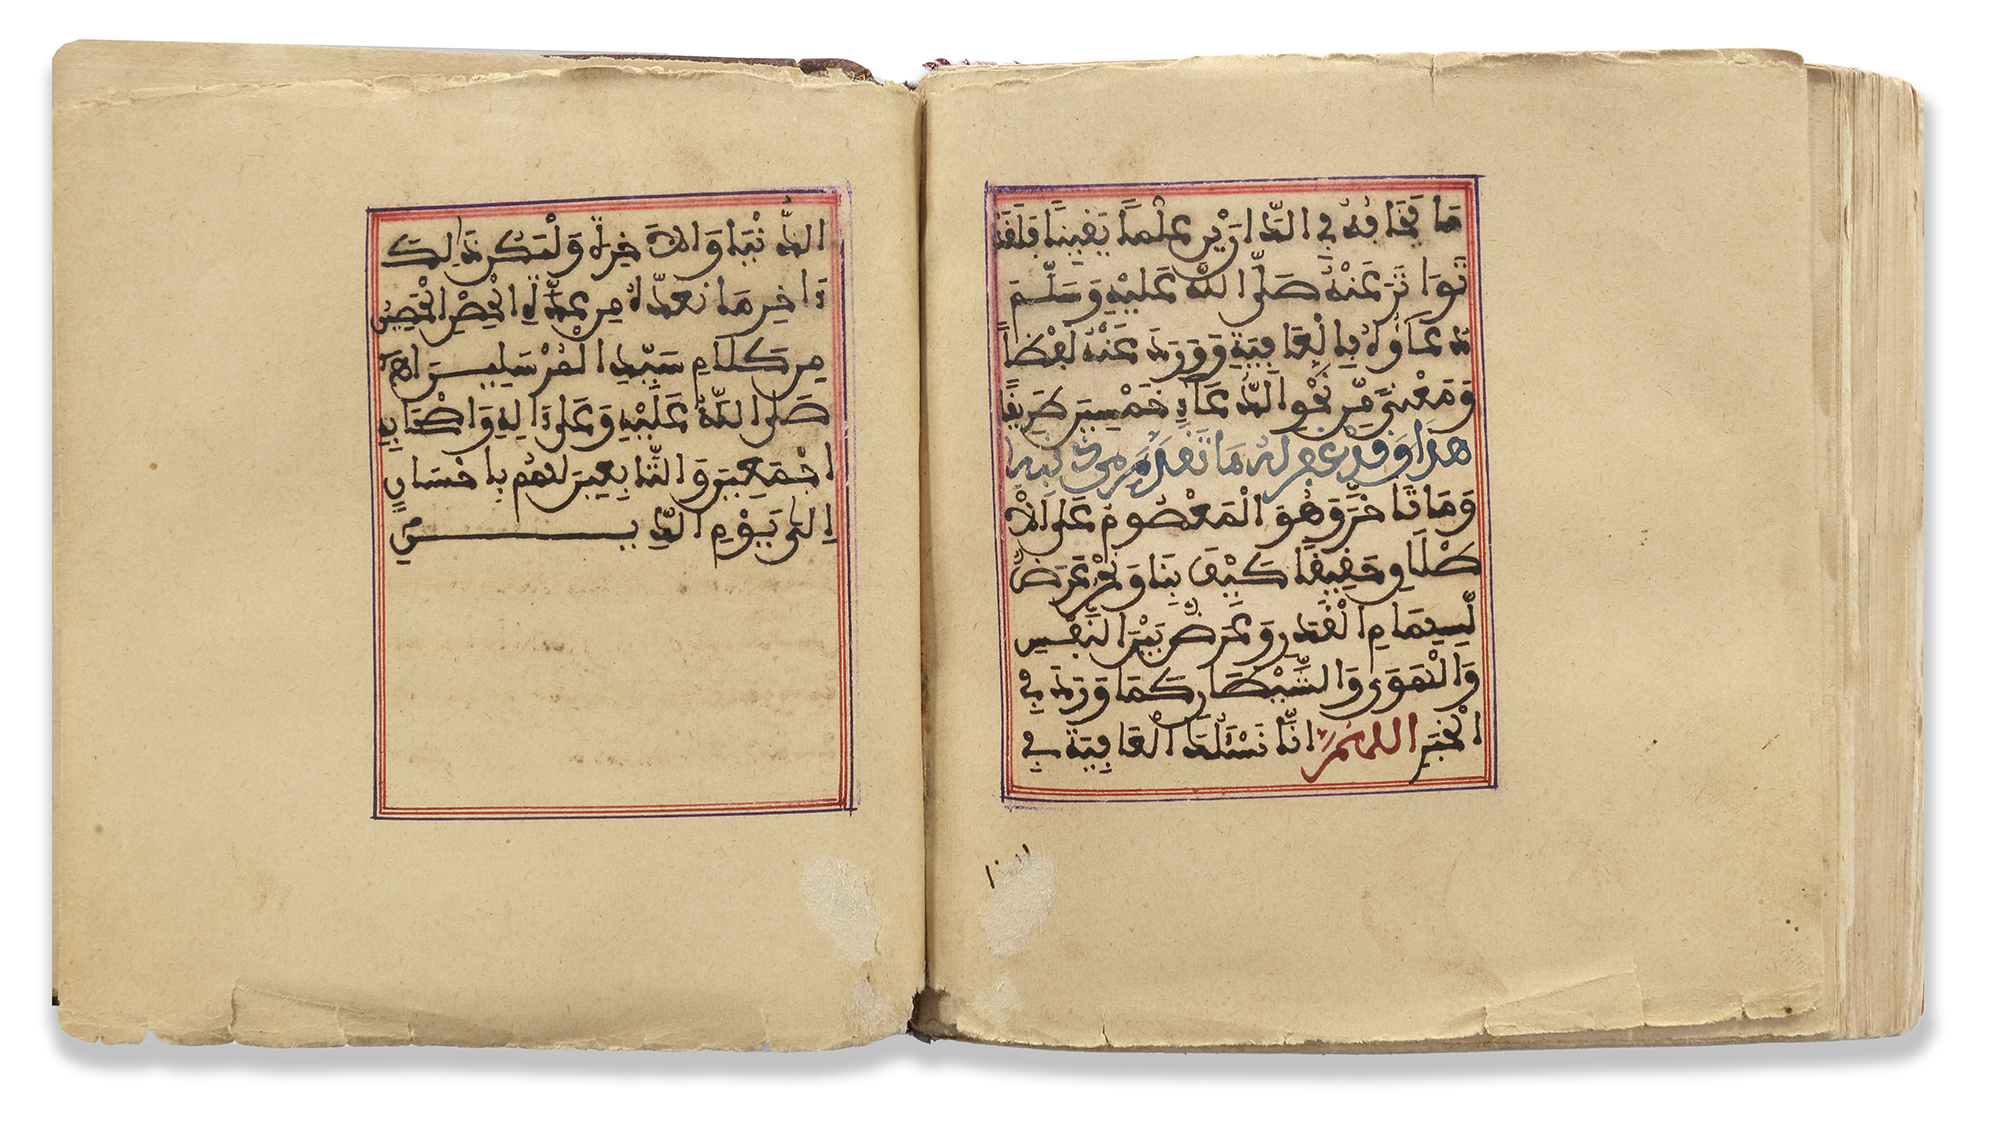 مَا يَخَافُهُ فِي الدَّارَيْنِ عِلْمًا يَقِينًا فَلَقَدْ
تَوَاتَرَ عَنْهُ صَلَّى اللَّهُ عَلَيْهِ وَسَلَّمَ
دُعَاؤُهُ بِالْعَافِيَةِ وَوَرَدَ عَنْهُ لَفْظًا
وَمَعْنًى مِّن نَّحْوِ الدُّعَاءِ خَمْسِينَ طَرِيقًا
هذا وقد غفر له ما تقدم من ذنبه
وَمَا تَأَخَّرَ وَهُوَ الْمَعْصُومُ عَلَى الْإِ
طْلَاقِ حَقِيقًا كَيْفَ بِنَا وَنَحْنُ غَرَضٌ
لِّسِهَامِ الْقَدَرِ وَغَرَضٌ بَيْنَ النَّفْسِ
وَالْهَوَى وَالشَّيْطَانِ كَمَا وَرَدَ فِي
الْخَبَرِ اللهم إِنَّا نَسْئَلُكَ الْعَافِيَةَ فِي
الدُّنْيَا وَالْآخِرَةِ وَلْيَكُن ذَالِكَ
ءَاخِرَ مَا نَعُدُّهُ مِنْ عُدَّةِ الْحِصْنِ الْحَصِينِ
مِن كَلَامِ سَيِّدِ الْمُرْسَلِينَ اه
صَلَّى اللَّهُ عَلَيْهِ وَعَلَى ءَالِهِ وَأَصْحَابِهِ
أَجْمَعِينَ وَالتَّابِعِينَ لَهُم بِإِحْسَانٍ
إِلَى يَوْمِ الدِّينِ